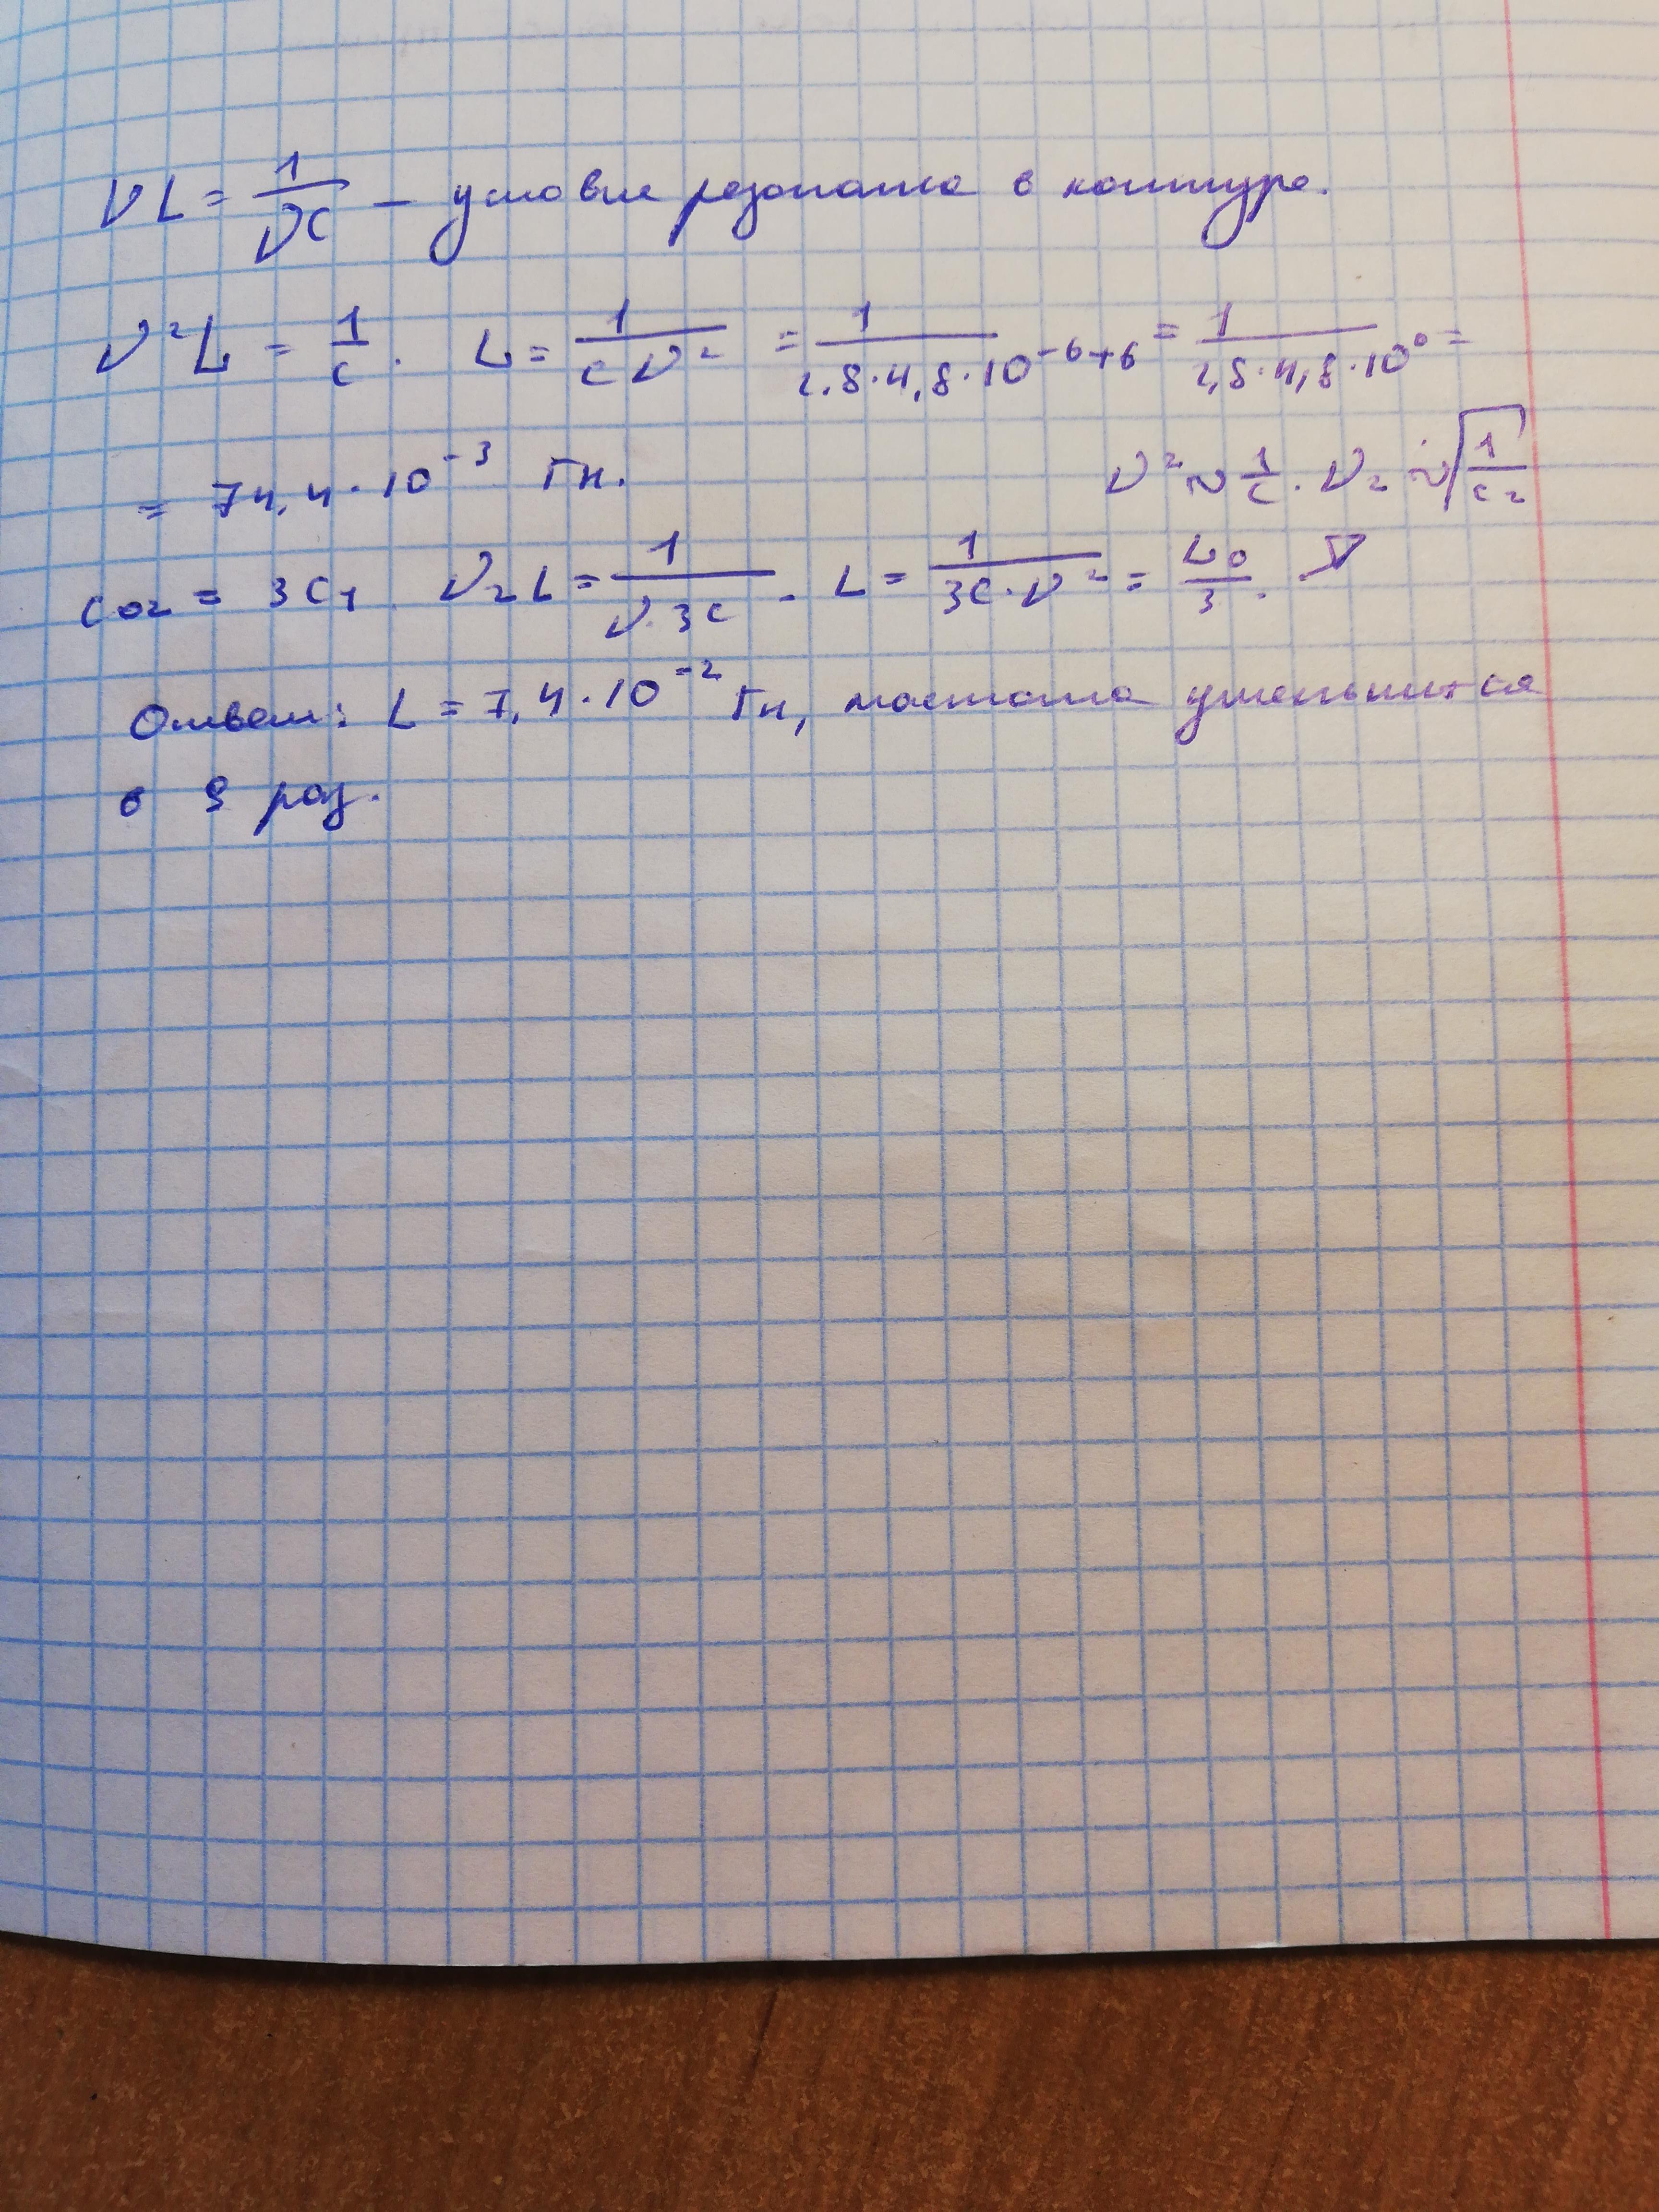 νL = 1/νC – условие резонанса в контуре.
ν²L = 1/C. L = 1/Cν² = 1/2,8·4,8·10⁻⁶⁺⁶ = 1/2,8·4,8·10⁰ =
= 74,4·10⁻³ Гн.
ν² ~ 1/C. ν₂ ~ √1/C₂
C02 = 3C1 ν₂L = 1/ν·3C. L = 1/3C·ν² = L0/3.
Ответ: L = 7,4·10⁻² Гн, частота уменьшится
в 9 раз.